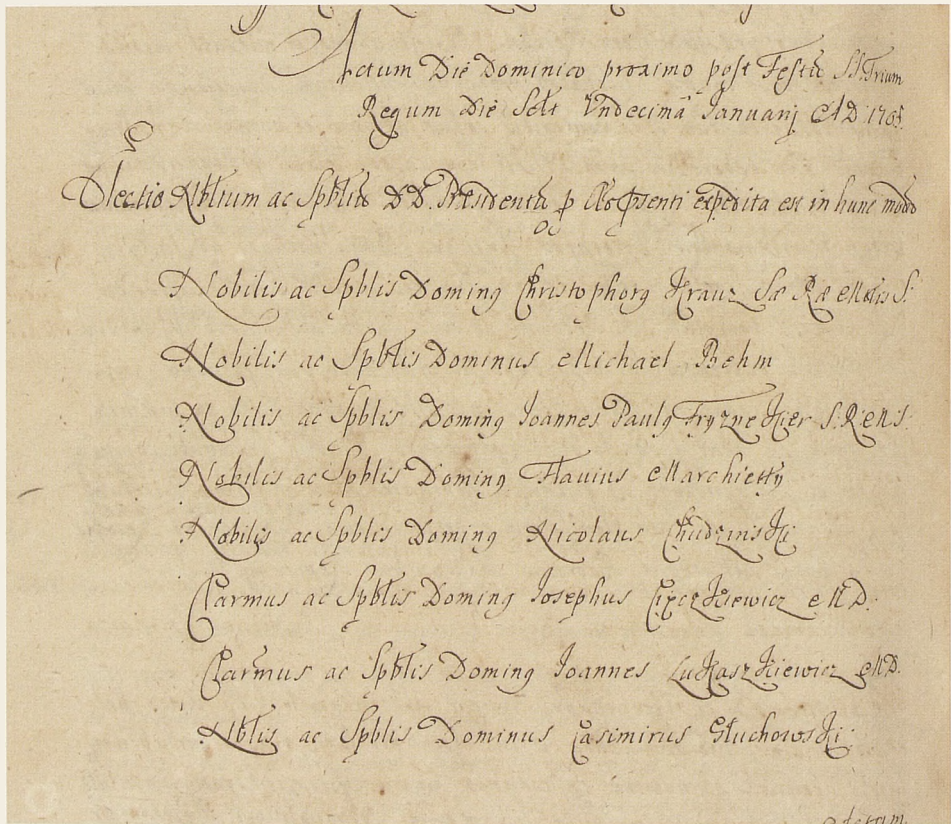 Actum Die Dominico proximo post Festū SS. Trium
Regum Die Sclt Vndecimâ Januarij AD. 170
Electio Nbłium ac Spbłiū DD. Præsidentū p Ao præsenti expedita est in hunc modū
Nobilis ac Spblis Dominꝰ Christophorꝰ Krauz Sæ Ræ Mttis S.
Nobilis ac Spbłis Dominus Michael Behm
Nobilis ac Spblis Dominꝰ Joannes Paulꝰ Fryznekier S. R. M. S.
Nobilis ac Spbłis Dominꝰ Flavius Marchietty
Nobilis ac Spblis Dominꝰ Nicolaus Chudzinski
Clarmus ac Spbłis Dominꝰ Josephus Cyrzkiewicz M D.
Clarmus ac Spbłis Dominꝰ Joannes Lukaszkiewicz MD.
Nbłis ac Spblis Dominus Casimirus Głuchowski